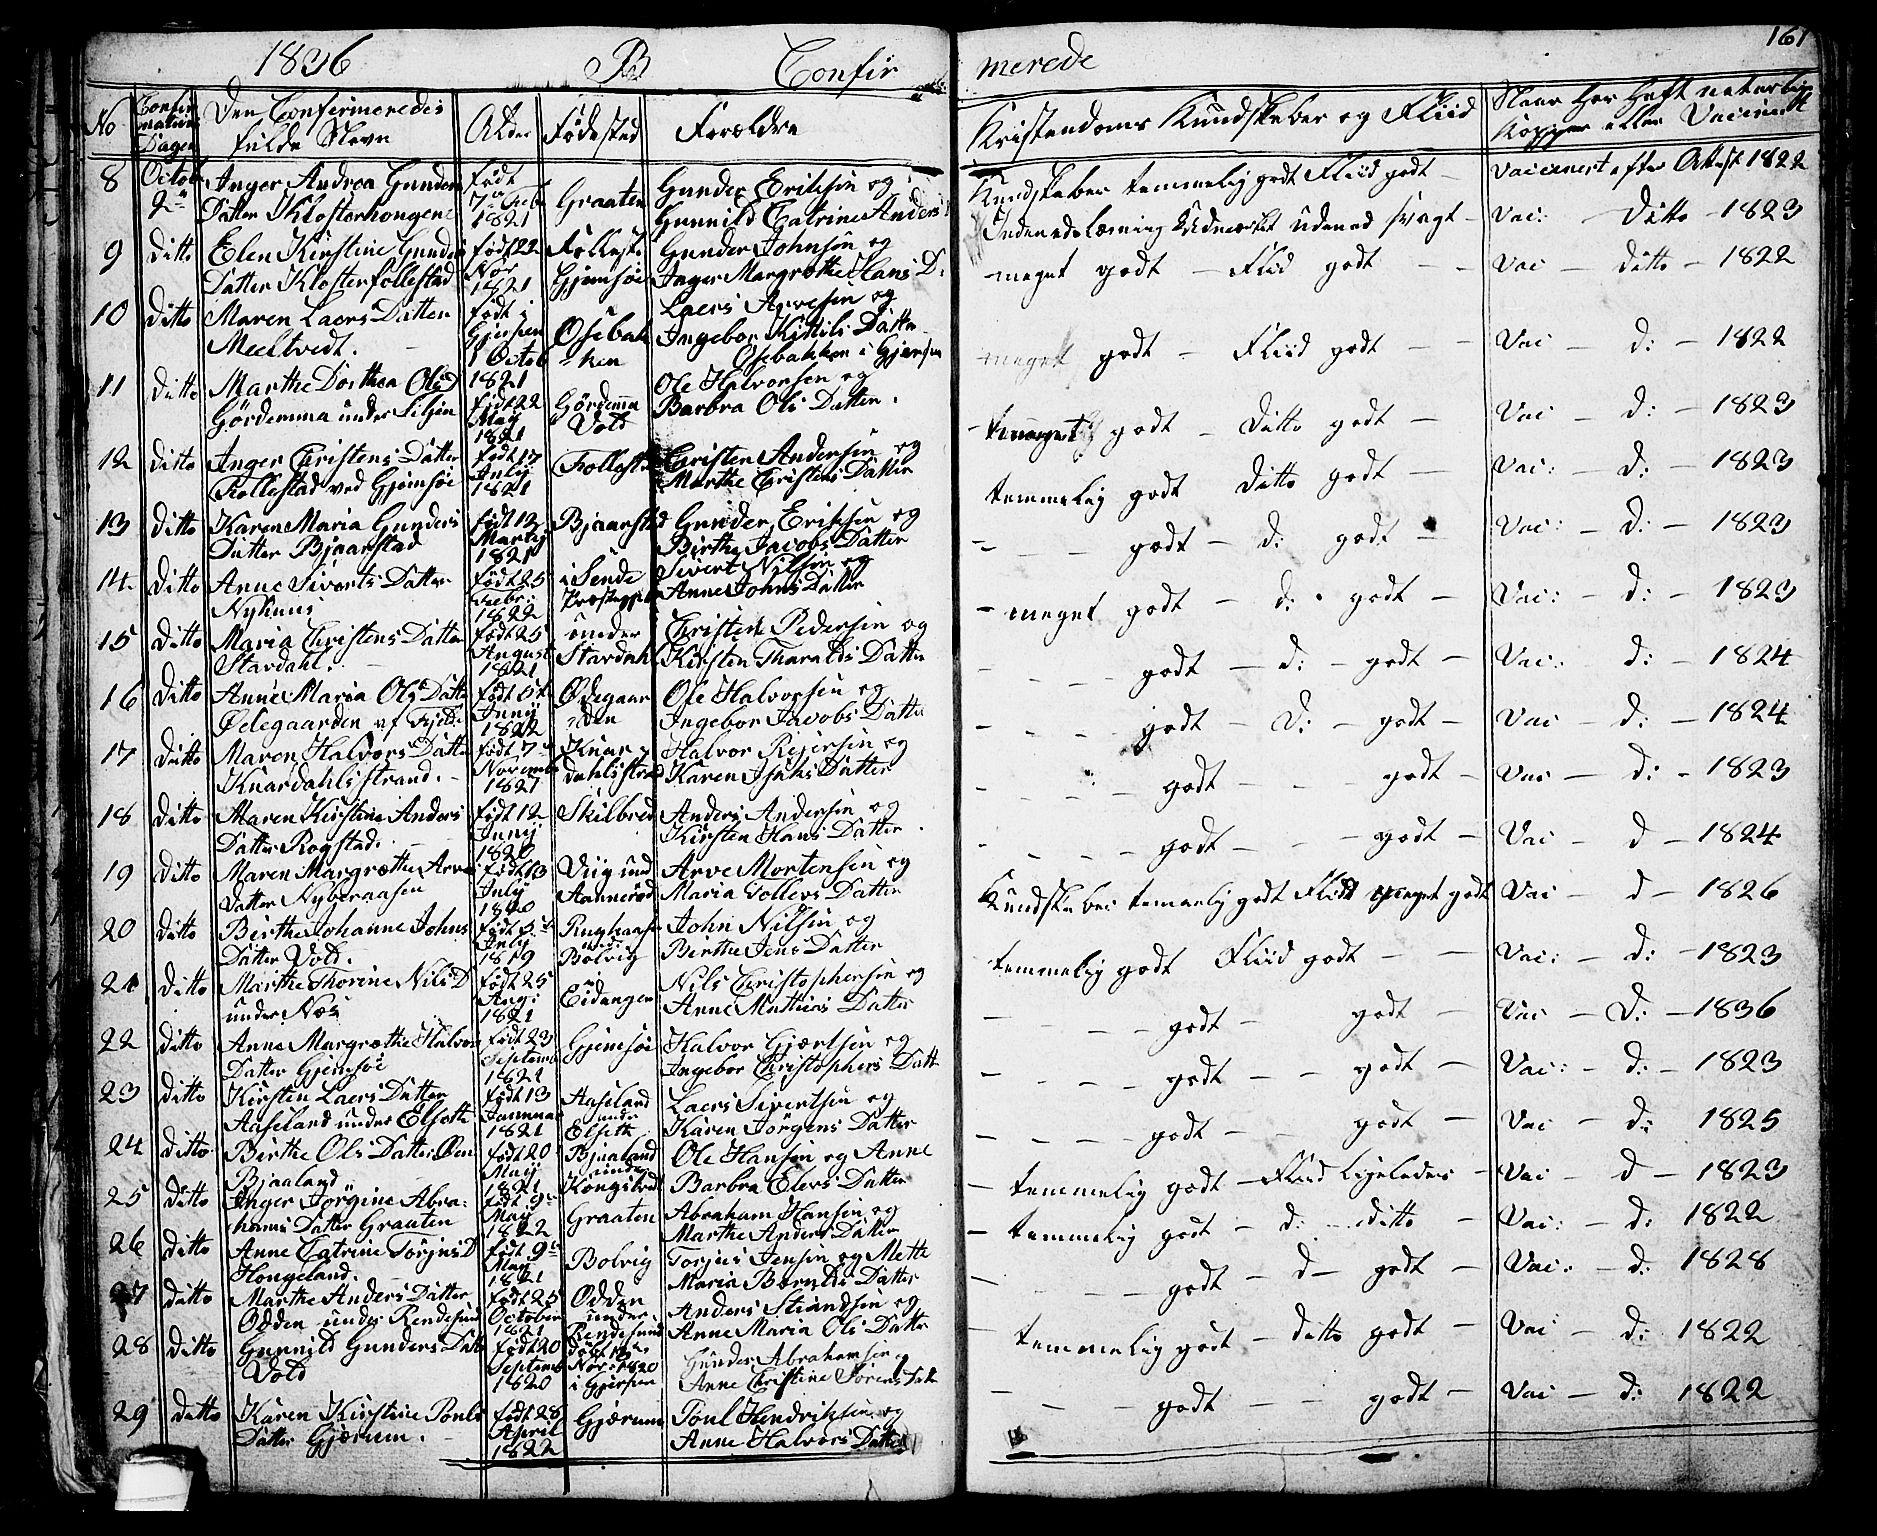 1836 B Confir merede 161
No Confir mations Dagen Den Confirmeredes fulde Navn Alder Fødested Forældre Kristendoms Kundskaber og Fliid Naar Har Haft naturlig Kopper eller Vaccinert
8 Octob 2n Inger Andrea Gunders Datter Klosterhougene født 7n Feb 1821 Graaten Gunder Eriksen og Gunnild Catrine Anders Kundskaber temmelig godt Fliid godt Vaccinert efter Attest 1822
9 Ditto Elen Kirstine Gunders Datter Klosterfollestad født 22 Nov 1821 Follest. Gjemsøe Gunder Johnsen og Inger Margrethe Hans D: meget godt – Fliid godt Vac: Ditto 1823
Indenadslæsning udenad svagt
Vac – ditto – 1822
10 Ditto Maren Laers Datter Meeltvedt. født i Gjerpen 1 Octob 1821 Osebak ken Laers Arvesen og Ingebor Kittils Datter Osebakken i Gjerpen meget godt – Fliid godt – – Vac – d: – 1822
11 Ditto Marthe Dorthea Ols D Gördemma under Siljen født 22 May 1821 Gördemma Vold Ole Halvorsen og Barbra Ols Datter. godt – Ditto godt – Vac – d: – 1823
12 Ditto Inger Christens Datter Follestad ved Gjemsøe født 17 July 1821 Follestad Christen Andersen og Marthe Christens Datter temmelig godt Ditto godt – Vac: – d: – 1823
13 Ditto Karen Maria Gunders Datter Bjaarstad født 13 Martij 1821 Bjaarstad Gunder Eriksen og Birthe Jacobs Datter – – – godt – d: godt – Vac: – d: – 1823
14 Ditto Anne Siverts Datter Nyhuus født 25 Febr: 1822 i Sende Præstegjeld Sivert Nilsen og Anne Johns Datter – meget godt – d: godt – Vac: – d: – 1823
15 Ditto Maria Christens Datter Stavdahl. født 25 August 1821 under Stavdahl Christen Pedersen og Kirsten Tharalds Datter – – – godt – d: – godt – Vac: – d: – 1824
16 Ditto Anne Maria Ols Datter Ødegaarden af født 5t Juny 1822 Ødegaar den Ole Halvorsen og Ingebor Jacobs Datter – – – godt – D: – godt – Vac – d: – 1824
17 Ditto Maren Halvors Datter Knardahlsstrand. født 7 Novemb 1821 Knar dahlsstrand Halvor Rejersen og Karen Isaks Datter – – – godt – – godt – Vac – d: – 1823
18 Ditto Maren Kirstine Anders Datter Rogstad. født 12 Juny 1820 Skilbred Anders Andersen og Kirsten Hans Datter – – – godt – – – godt – Vac – d – 1824
19 Ditto Maren Margrethe Arves Datter Nyberaasen født 13 July 1820 Viig und Aannerød Arve Mortensen og Maria Tollevs Datter Kundskaber temmelig godt Fliid meget godt Vac – d – 1826
20 Ditto Birthe Johanne Johns Datter Vold. født 5t July 1819 ved Bolvig John Nilsen og Birthe Jens Datter temmelig godt Fliid godt – – Vac: – d: – 1823
21 Ditto Marthe Thorine Nils D under Næs født 25 Aug: 1821 i Eidanger Nils Christophersen og Anne Mathias Datter – – – – godt – godt – Vac – D: – 1836
22 Ditto Anne Margrethe Halvors Datter Gjemsöe født 23 Septemb 1821 Gjemsöe Halvor Gjærtsen og Ingebor Christophers Datt – – – – godt – – godt – Vac: – d: – 1823
23 Ditto Kirsten Laers Datter Aaseland under Elseth født 13 Januar 1821 Aaseland under Elseth Laers Sivertsen og Karen Jörgens Datter – – – – godt – – godt – Vac – d: 1825
24 Ditto Birthe Ols Datter Bjaaland født 20 May 1821 Bjaaland under Kongsbrot Ole Hansen og Anne Barbra Elevs Datter – temmelig godt – Fliid ligeledes – Vac – d – 1823
25 Ditto Inger Jörgine Abra= hams Datter Graaten født 9 May 1822 Graaten Abraham Hansen og Marthe Anders Datter – temmelig godt – d: ditto – Vac: – d: 1822
26 Ditto Anne Catrine Torjus D Hougeland. født 9 May 1821 Bolvig Torjus Jensen og Mette Maria Bernds Datter – – godt – d – godt – Vac: – d: 1828
27 Ditto Marthe Anders Datter Odden under Rendesund født 25 October 1821 Odden under Rendesund Anders Strandsen og Anne Maria Ols Datter – temmelig godt – ditto godt – Vac – d: 1822
28 Ditto Gunnild Gunders Datt Vold født 20 Septemb 1820 døbt Nov: 1820 i Gjerpen Gunder Abrahamsen og Anne Christine Sørens Datt – – – godt – – godt – Vac – d: 1822
29 Ditto Karen Kirstine Pouls Datter Gjærum. født 28 April 1822 Gjærum Poul Hendriksen og Anne Halvors Datter